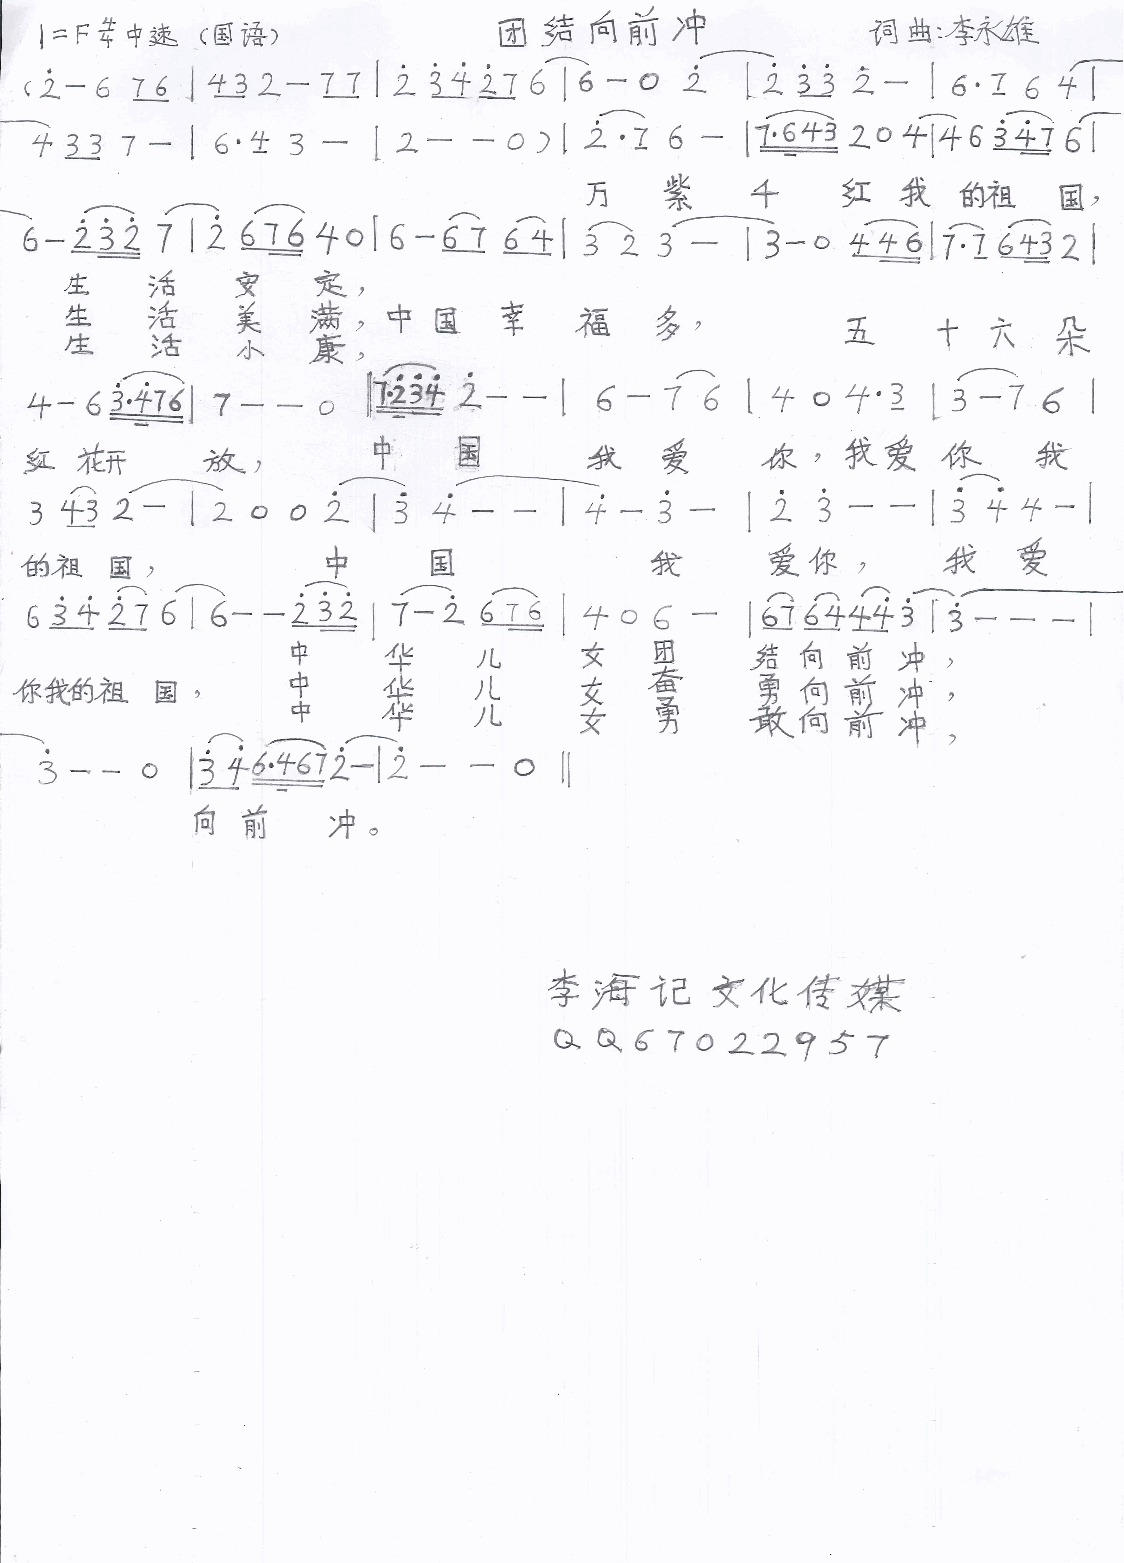 1=F 4/4 中速 (国语) 团结向前冲 词曲:李永雄
(2̇-6 76|432-77|2̇ 3̇4̇2̇76|6-0 2̇|2̇3̇3̇ 2̇-|6·7 6 4|
4 33 7-|6·4 3-|2--0)|2̇·7 6-|7·643 204|46 3̇·4̇76|
万 紫 千 红 我 的祖 国,
6-2̇3̇2̇ 7|2̇ 676 40|6-67 64|3 2 3-|3-0 446|7·7 643 2|
生 活 安 定,
生 活 美 满, 中 国 幸 福 多, 五 十 六 朵
生 活 小 康,
4-6 3̇·4̇76|7--0 ‖7·2̇3̇4̇ 2̇--|6-7 6|4 0 4·3|3-7 6|
红 花开 放, 中 国 我 爱 你, 我 爱 你 我
3 43 2-|2 0 0 2̇|3̇ 4̇--|4̇-3̇-|2̇ 3̇--|3̇ 4̇ 4-|
的祖 国, 中 国 我 爱你, 我 爱
6 3̇4̇ 2̇7 6|6--2̇3̇2̇|7-2̇ 676|4 0 6-|67 64 44̇ 3̇|3̇---|
中 华 儿 女 团 结 向 前 冲,
你我的祖 国, 中 华 儿 女 奋 勇 向 前 冲,
中 华 儿 女 勇 敢 向 前 冲,
3̇--0|3̇4̇ 6·467 2̇-|2̇--0‖
向 前 冲。
李海记文化传媒
QQ67022957